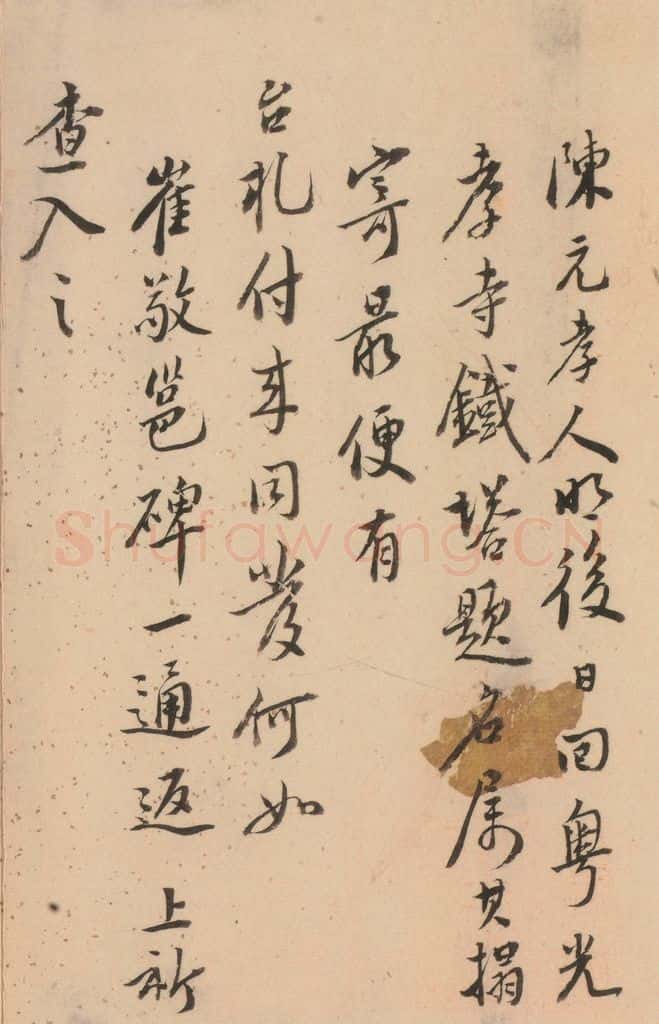 陳元孝人明後日回粤光
孝寺鐵塔題名属其搨
寄最便有
台札付来同發何如
崔敬邕碑一通返上祈
查入之
Shufawang.CN